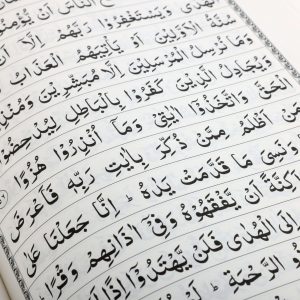 النَّاسَ أَنْ يُّؤْمِ
الْهُدٰى وَيَسْتَغْفِرُوْا رَبَّهُمْ إِلَّا أَنْ
سُنَّةُ الْأَوَّلِيْنَ أَوْ يَأْتِيَهُمُ الْعَذَابُ
وَمَا نُرْسِلُ الْمُرْسَلِيْنَ إِلَّا مُبَشِّرِيْنَ وَمُنْذِ
وَيُجَادِلُ الَّذِيْنَ كَفَرُوْا بِالْبَاطِلِ لِيُدْحِضُوْا
الْحَقَّ وَاتَّخَذُوْٓا اٰيٰتِيْ وَمَآ أُنْذِرُوْا هُزُوًا
مَنْ أَظْلَمُ مِمَّنْ ذُكِّرَ بِاٰيٰتِ رَبِّهٖ فَأَعْرَضَ
وَنَسِيَ مَا قَدَّمَتْ يَدٰهُ ۗ إِنَّا جَعَلْنَا عَلٰى
أَكِنَّةً أَنْ يَّفْقَهُوْهُ وَفِيْٓ اٰذَانِهِمْ وَقْرًا
إِلَى الْهُدٰى فَلَنْ يَّهْتَدُوْٓا إِذًا
ذُو الرَّحْمَةِ ۗ